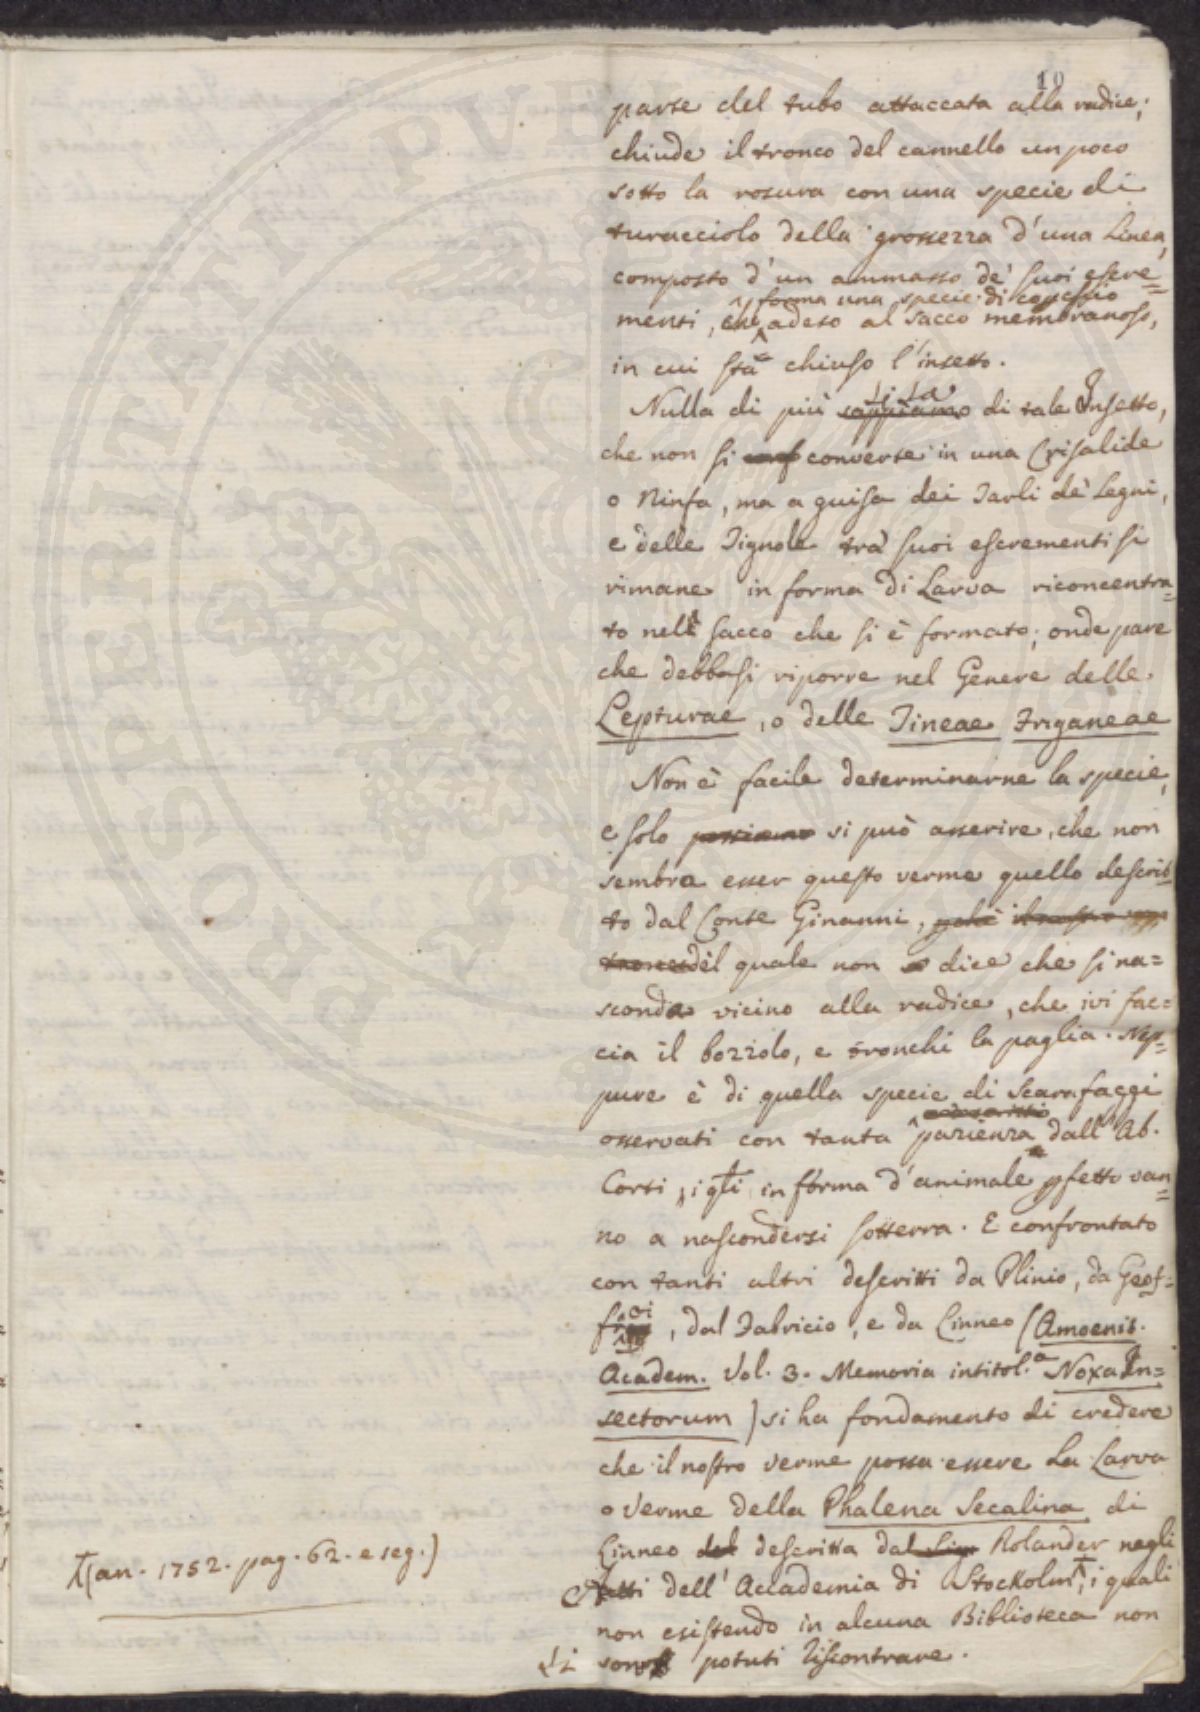 10
parte del tubo attaccata alla radice;
chiude il tronco del cannello un poco
sotto la rosura con una specie di
turacciolo della grossezza d'una Linea,
composto d'un ammasso de' suoi escre=
forma una specie di coperchio
menti, che adeso al sacco membranoso,
in cui sta chiuso l'insetto.
si sa
Nulla di più sappiamo di tale Insetto,
che non si conf converte in una Crisalide
o Ninfa, ma a guisa dei Tarli de' Legni,
e delle Tignole tra suoi escrementi si
rimane in forma di Larva riconcentra=
to nel sacco che si è formato; onde pare
che debbasi riporre nel Genere delle
Lepturae, o delle Tineae Friganeae
Non è facile determinarne la specie,
e solo possiamo si può asserire, che non
sembra esser questo verme quello descrit=
to dal Conte Ginanni, il nostro
il quale non dice che si na=
sconda vicino alla radice, che ivi fac=
cia il bozzolo, e tronchi la paglia. Nep=
pure è di quella specie di Scarafaggi
osservati con tanta pazienza dall'Ab.
Corti, i qli in forma d'animale pfetto van=
no a nascondersi sotterra. E confrontato
con tanti altri descritti da Plinio, da Geof=
froi, dal Fabricio, e da Linneo (Amoenit.
Academ. Vol. 3. Memoria intitol.a Noxa In=
sectorum) si ha fondamento di credere
che il nostro verme possa essere La Larva
o Verme della Phalena Secalina di
Linneo del descritta dal Sigr Rolander negli
Atti dell'Accademia di Stockolm, i quali
non esistendo in alcuna Biblioteca non
si sono potuti riscontrare.
(an. 1752. pag. 62. e seg.)
PROSPERITATI PVBL